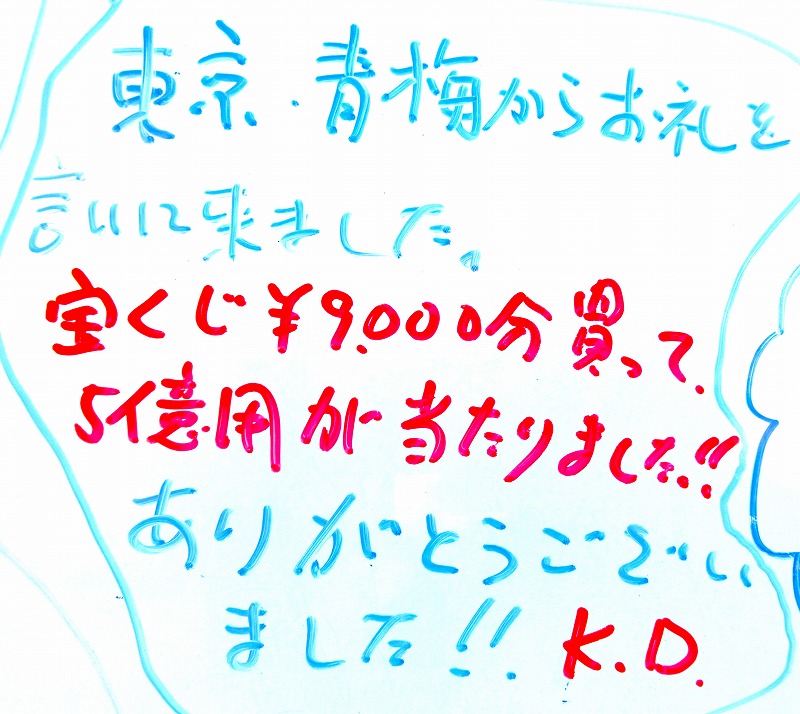 東京・青梅からお礼を
言いに来ました。
宝くじ¥9,000分買って、
5億用が当たりました!!
ありがとうござい
ました!! K.D.